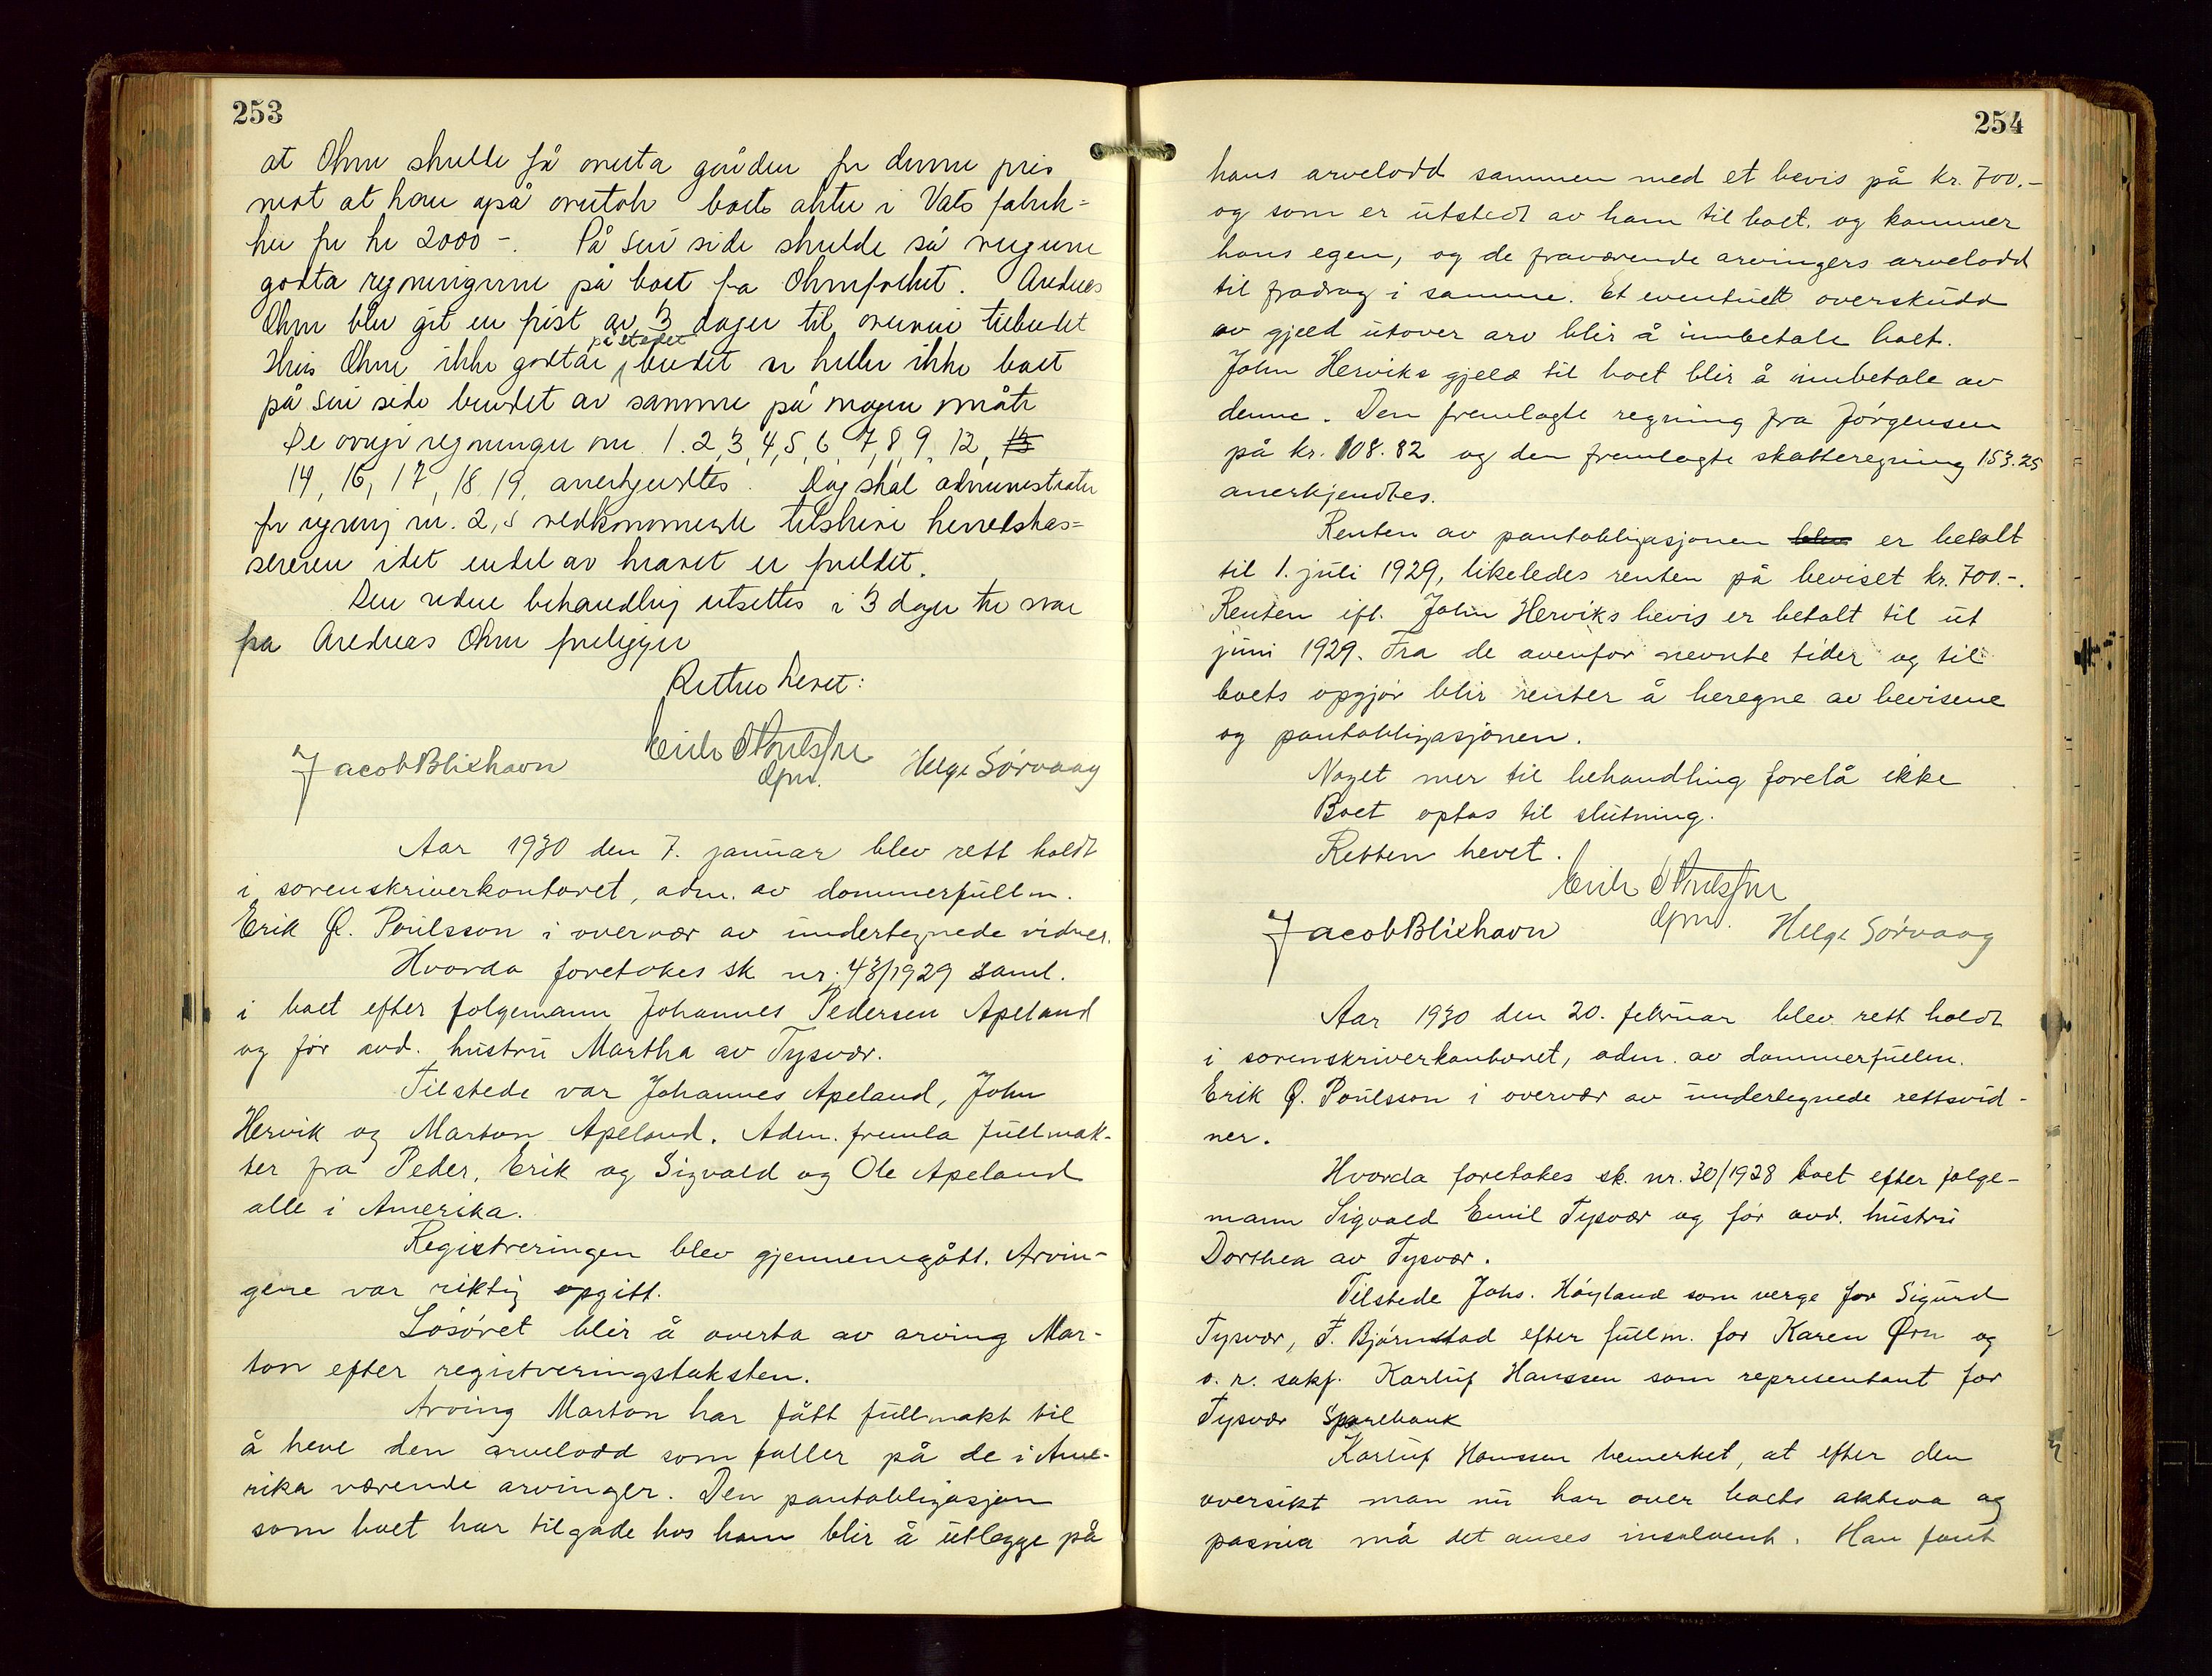 253
at Ohm skulle få overta gården for denne pris
mot at han også overtok boets aktie i Vats fabrik-
ker for kr 2000 -. På sin side skulde så
godta regningene på boet fra Ohmfolket. Andreas
Ohm blev git en frist av 3 dager til tilbudet
på stedet
Hvis Ohm ikke godtar budet er heller ikke boet
på sin side bundet av samme på nogen måte
De øvrige regninger nr. 1. 2, 3, 4, 5, 6, 7, 8, 9, 12, 13
14, 16, 17, 18, 19, anerkjendtes. Dog skal administrator
for regning nr. 2, 5 vedkommende tilskrive herredskas-
sereren idet endel av kravet er foreldet.
Den videre behandling utsettes i 3 dager til svar
fra Andreas Ohm foreligger
Retten hevet:
Jacob Blikhavn Erik Ø Poulsson Helge Sørvaag
dfm.
Aar 1930 den 7. januar blev rett holdt
i sorenskriverkontoret, adm. av dommerfullm.
Erik Ø. Poulsson i overvær av undertegnede vidner.
Hvorda foretokes sk nr. 43/1929 saml.
i boet efter folgemann Johannes Pedersen Apeland
og før avd. hustru Martha av Tysvær.
Tilstede var Johannes Apeland, John
Hervik og Marton Apeland. Adm. fremla fullmak-
ter fra Peder, Erik og Sigvald og Ole Apeland
alle i Amerika.
Registreringen blev gjennemgått. Arvin-
gene var riktig opgitt.
Løsøret blir å overta av arving Mar-
ton efter registreringstaksten.
Arving Marton har fått fullmakt til
å heve den arvelodd som faller på de i Ame-
rika værende arvinger. Den pantobligasjon
som boet har tilgode hos ham blir å utlegge på
254
hans arvelodd sammen med et bevis på kr. 700.-
og som er utstedt av ham til boet, og kommer
hans egen, og de fraværende arvingers arvelodd
til fradrag i samme. Et eventuelt overskudd
av gjeld utover arv blir å innbetale boet.
John Herviks gjeld til boet blir å innbetale av
denne. Den fremlagte regning fra Jørgensen
på kr. 108.82 og den fremlagte skatteregning 153.25
anerkjendtes.
Renten av pantobligasjonen blev er betalt
til 1. juli 1929, likeledes renten på beviset kr. 700.-.
Renten ifl. John Herviks bevis er betalt til ut
juni 1929. Fra de ovenfor nevnte tider og til
boets opgjør blir renter å beregne av bevisene
og pantobligasjonen.
Noget mer til behandling forelå ikke
Boet optas til slutning.
Retten hevet.
Erik Ø Poulsson
Jacob Blikhavn dfm. Helge Sørvaag
Aar 1930 den 20. februar blev rett holdt
i sorenskriverkontoret, adm. av dommerfullm.
Erik Ø. Poulsson i overvær av undertegnede rettsvid-
ner.
Hvorda foretokes sk. nr. 30/1928 boet efter folge-
mann Sigvald Emil Tysvær og før avd. hustru
Dorthea av Tysvær.
Tilstede Johs. Høyland som verge for Sigurd
Tysvær, F. Bjørnstad efter fullm. for Karen Ørn og
o. r. sakf. Karluf Hanssen som representant for
Tysvær Sparebank
Karluf Hanssen bemerket, at efter den
oversikt man nu har over boets aktiva og
passiva må det anses insolvent. Han fant